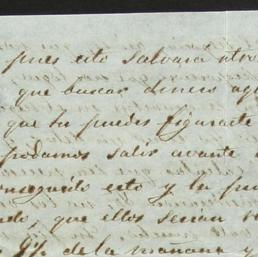 pues esto salvara otro
que buscar dinero aq
que tu puedes figurarte
podamos salir avante
onseguido esto y tu
ado, que ellos serian
9½ de la mañana y